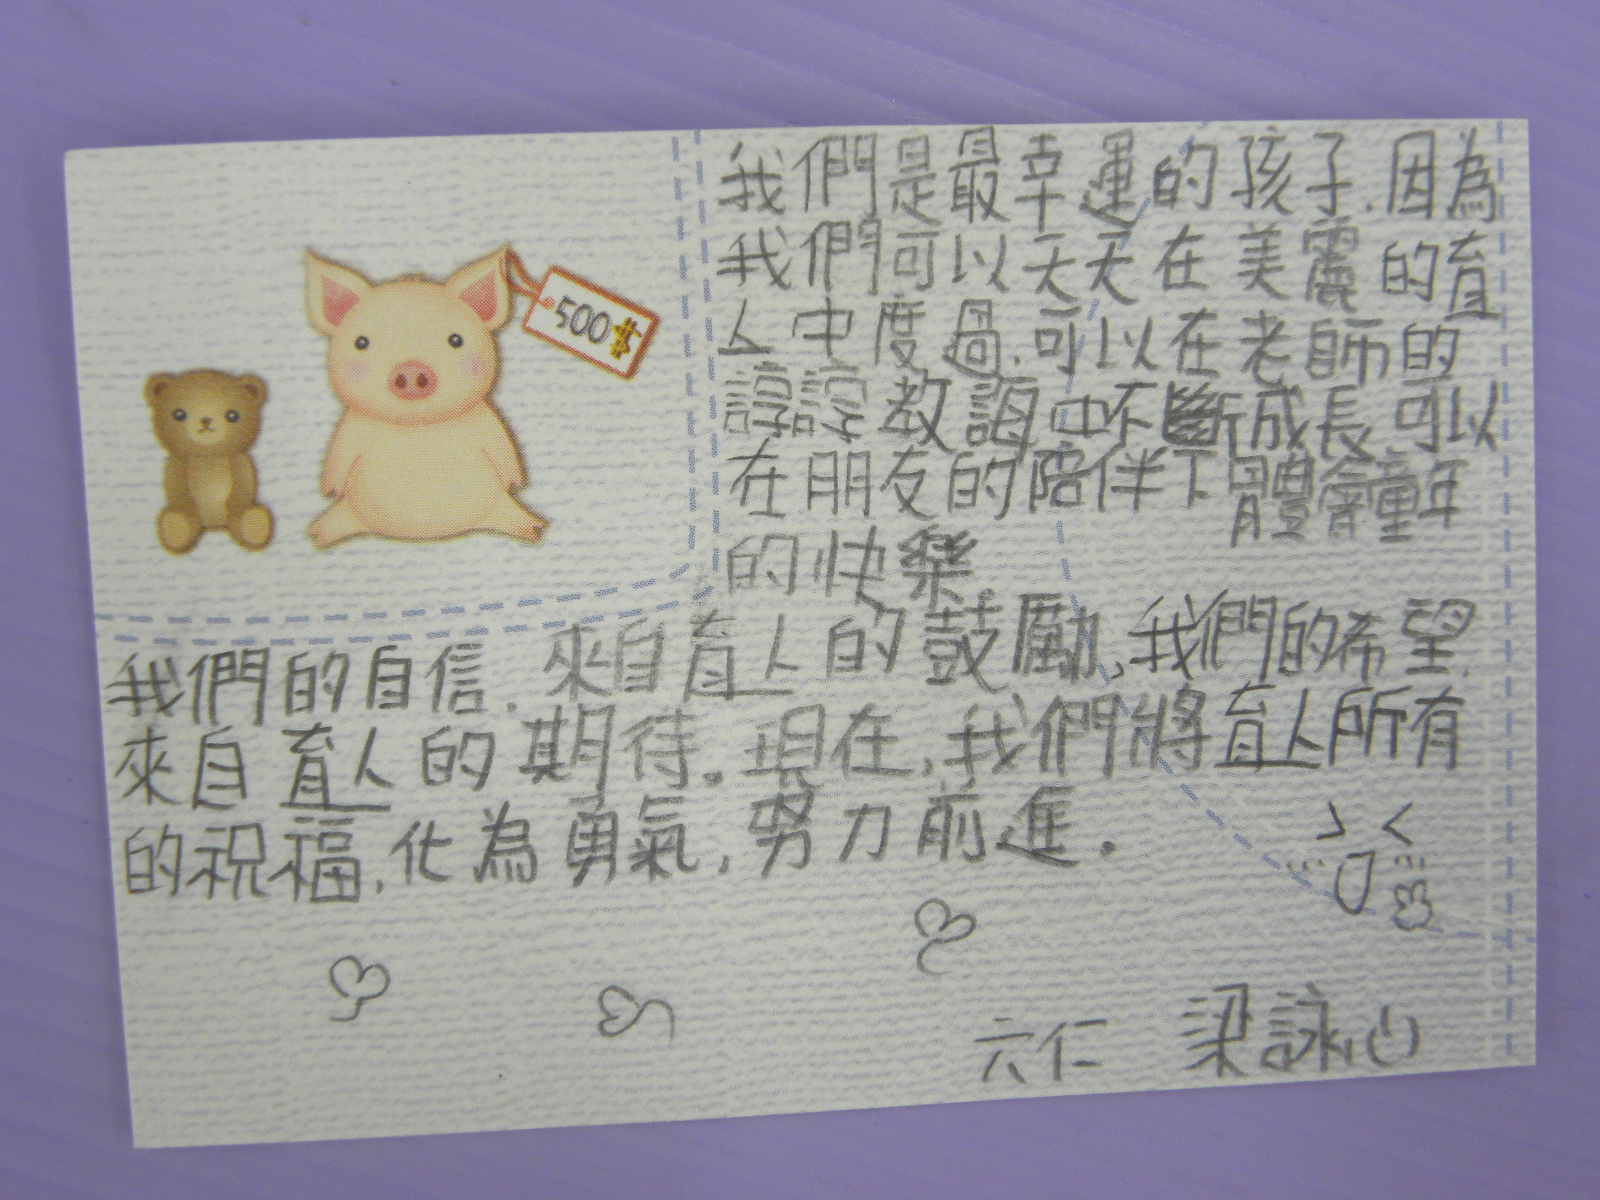 500$
我們是最幸運的孩子.因為
我們可以天天在美麗的育
人中度過.可以在老師的
諄諄教誨中不斷成長.可以
在朋友的陪伴下體會童年
的快樂.
我們的自信.來自育人的鼓勵,我們的希望.
來自育人的期待.現在,我們將育人所有
的祝福,化為勇氣,努力前進.
六仁 梁詠心